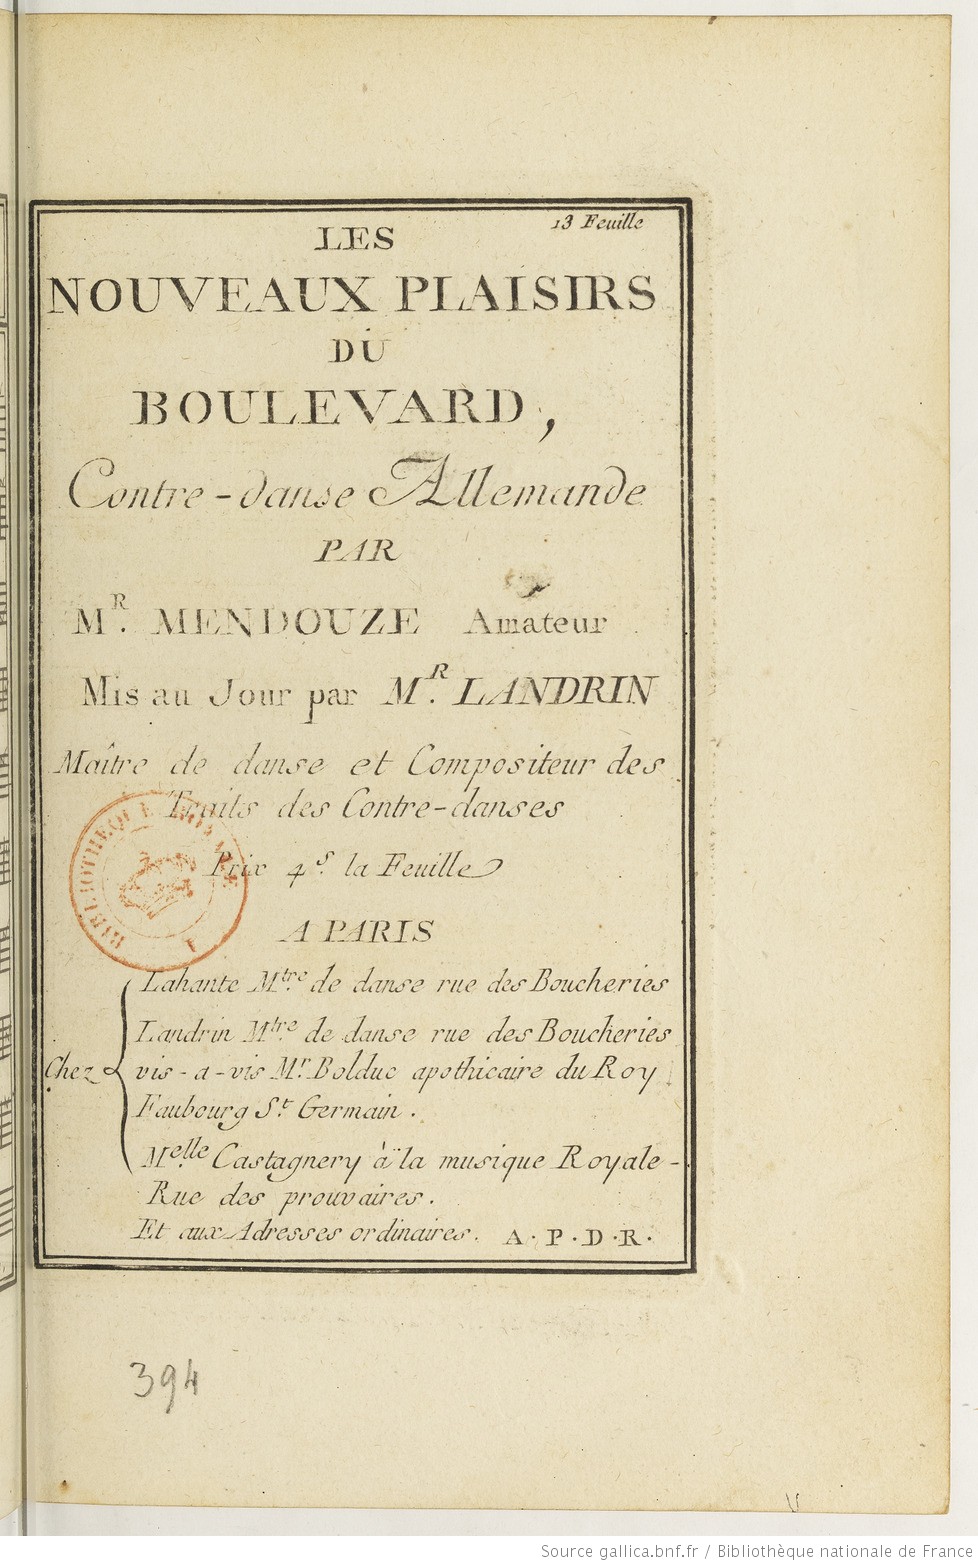 13 Feuille
LES
NOUVEAUX PLAISIRS
DU
BOULEVARD,
Contre-danse Allemande
PAR
MR. MENDOUZE Amateur
Mis au Jour par MR. LANDRIN
Maître de danse et Compositeur des
Traits des Contre-danses
Prix 4s. la Feuille
A PARIS
Lahante Mtre. de danse rue des Boucheries
Landrin Mtre. de danse rue des Boucheries
Chez vis-a-vis Mr. Bolduc apothicaire du Roy
Faubourg St. Germain.
Melle. Castagnery à la musique Royale-
Rue des prouvaires.
Et aux Adresses ordinaires. A.P.D.R.
394
Source gallica.bnf.fr / Bibliothèque nationale de France